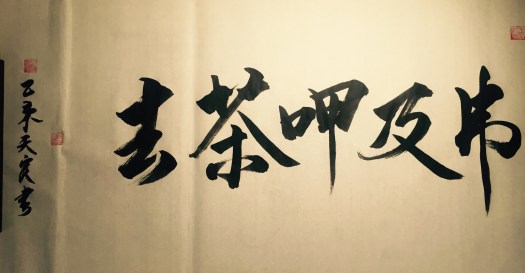 弗及呷茶去
乙未天書